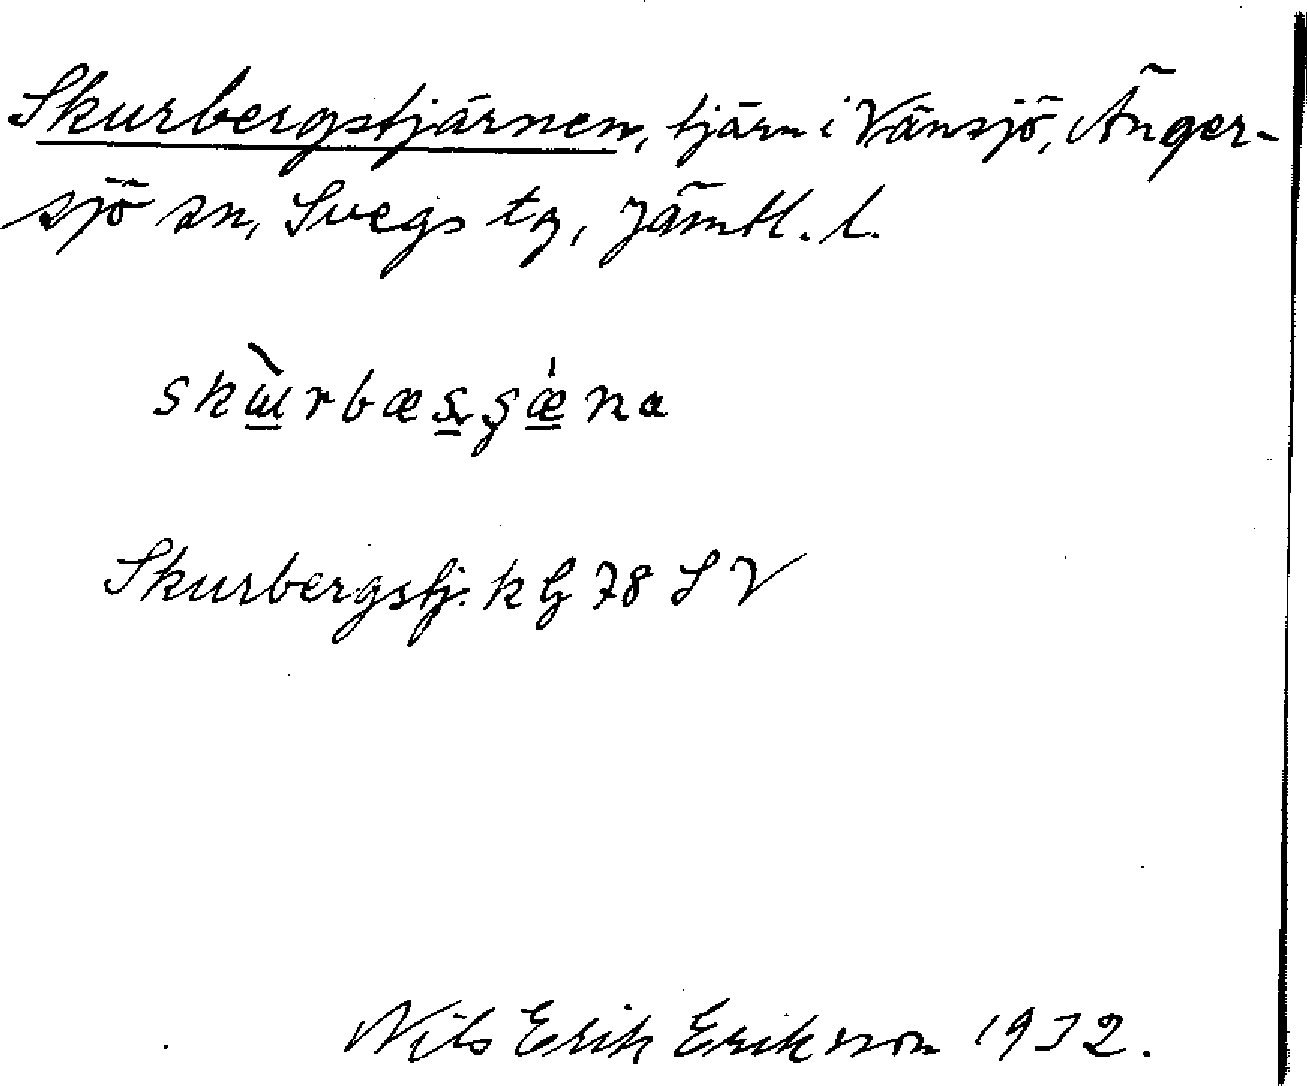 Skurbergstjärnen, tjärn i Vänsjö, Änger-
sjö sn, Svegs tg, Jämtl. l.
skɯ̀rbæs̠ʂǽna
Skurbergstj. k bl 78 S V
Nils Erik Eriksson 1932.